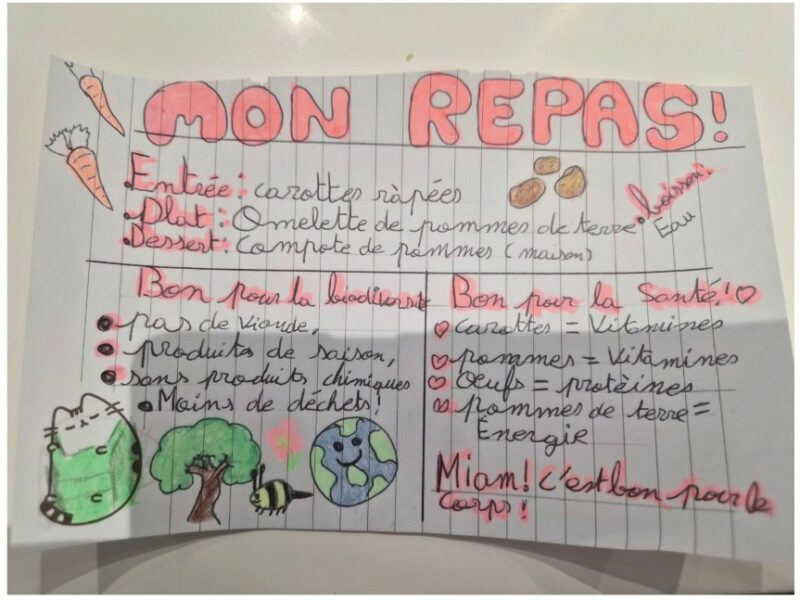 MON REPAS!
Entrée : carottes ràpées
Plat : Omelette de pommes de terre
Dessert: Compote de pommes (maison)
boisson:
Eau
Bon pour la biodiversité
pas de viande,
produits de saison,
sans produits chimiques
Moins de déchets!
Bon pour la santé!
carottes = Vitamines
pommes = Vitamines
Oeufs = protèines
pommes de terre =
Énergie
Miam! C'est bon pour le
corps!